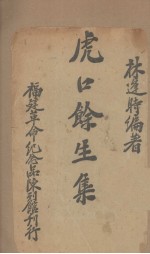 林逢時編著
虎口餘生集
福建革命紀念品陳列館刊行